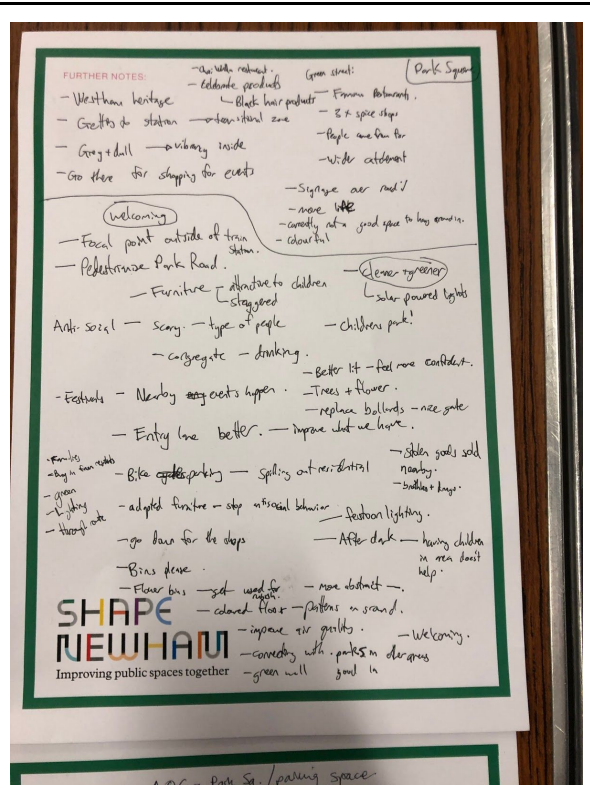 FURTHER NOTES:
- celebrate products
- Black hair products
- Westham heritage
station → transitional zone
- Grey + dull → vibrancy inside
- Go there for shopping for events
Green street:
Park Square
Restaurants
- 3 x spice shops
- People come from far
- Wider catchment
- Signage over road
- more
- currently not a good space to hang around in.
- colourful
welcoming
- Focal point outside of train station.
- Pedestrianize Park Road.
- Furniture - attractive to children
staggered
cleaner + greener
solar powered lights
Anti-social - scary. - type of people
- childrens park!
- congregate - drinking.
- Better lit - feel more confident.
- Festivals - Nearby events happen.
- Trees + flower.
- replace bollards - nice gate
- Entry lane better. - improve what we have.
- Families
- Buy in from
- green
- Lighting
- through route
- Bike parking - spilling out residential
- stolen goods sold nearby.
- brothels + drugs.
- adapted furniture - stop antisocial behavior
- festoon lighting.
- go down for the shops
- After dark - having children in area doesn't help.
- Bins please.
- Flower bins - get used for rubbish.
- more abstract -.
- colored floor - patterns on ground.
- improve air quality.
- Welcoming.
- connecting with parks in other areas
- green wall
SHAPE
NEWHAM
Improving public spaces together
Park Sq. / parking space